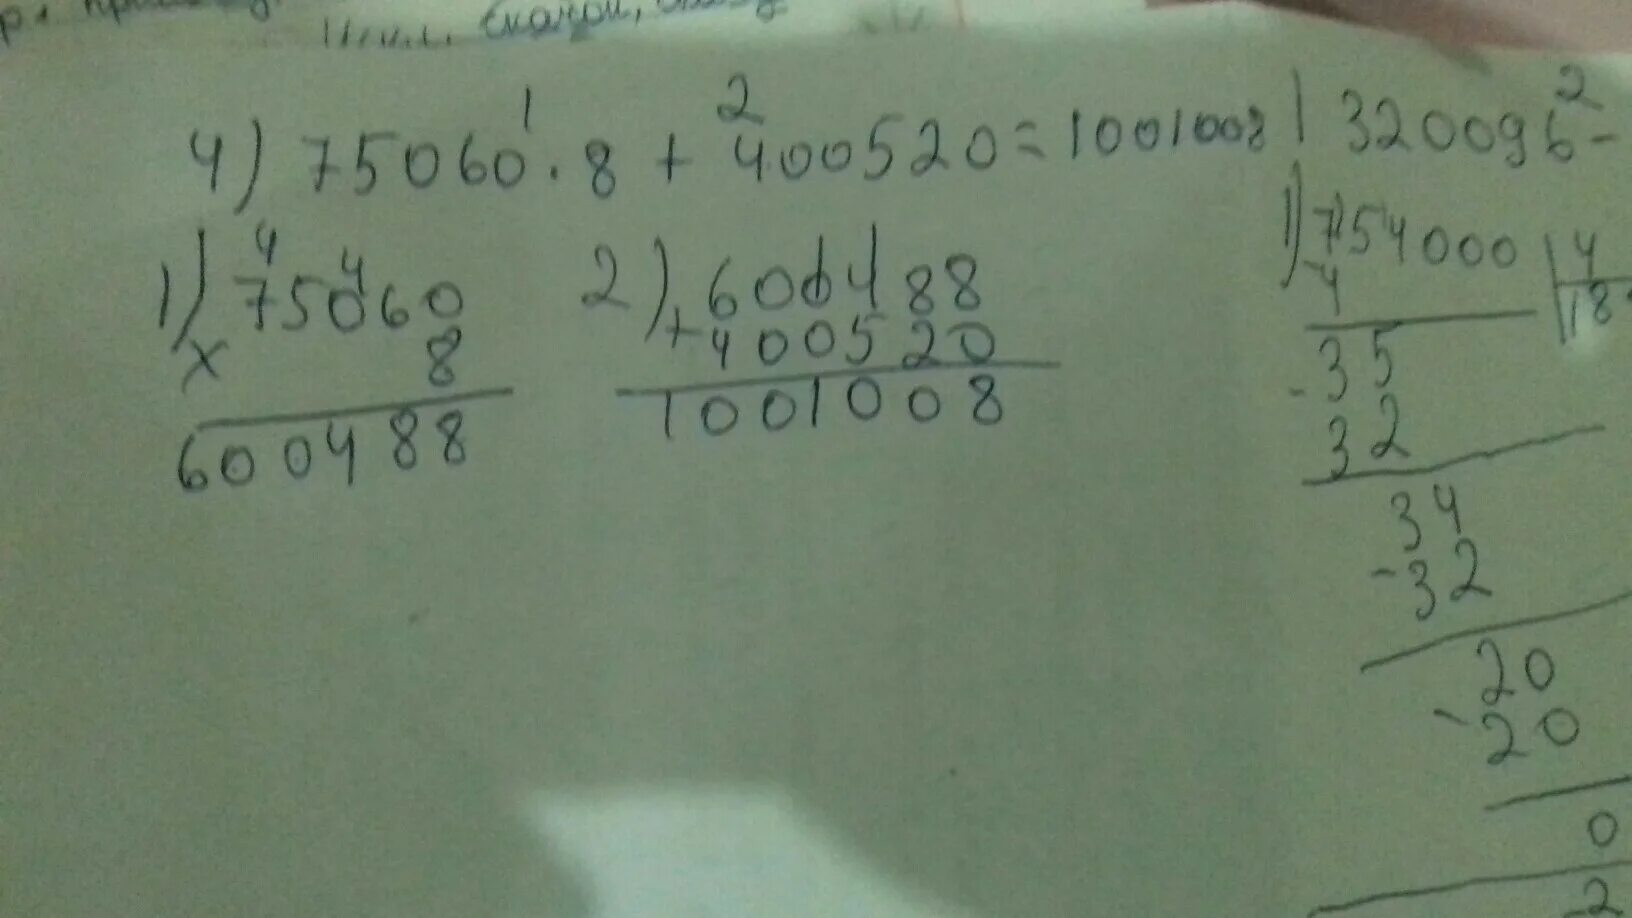 4) 75060 · 8 + 400520 = 1001008
1 2
1) 75060
4 4
× 8
600488
2) 600488
+ 400520
1001008
320096 -
2
1) 754000 4
- 4 18
- 35
32
34
- 32
20
- 20
0
2